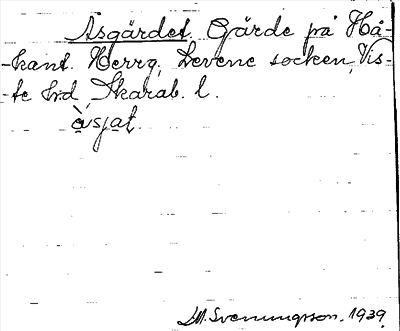 Åsgärdet. Gärde på Hå-
-kant. Herrg. Levene socken, Vis-
-te hrd, Skarab. l.
àsjat.
M. Svenungsson. 1939.